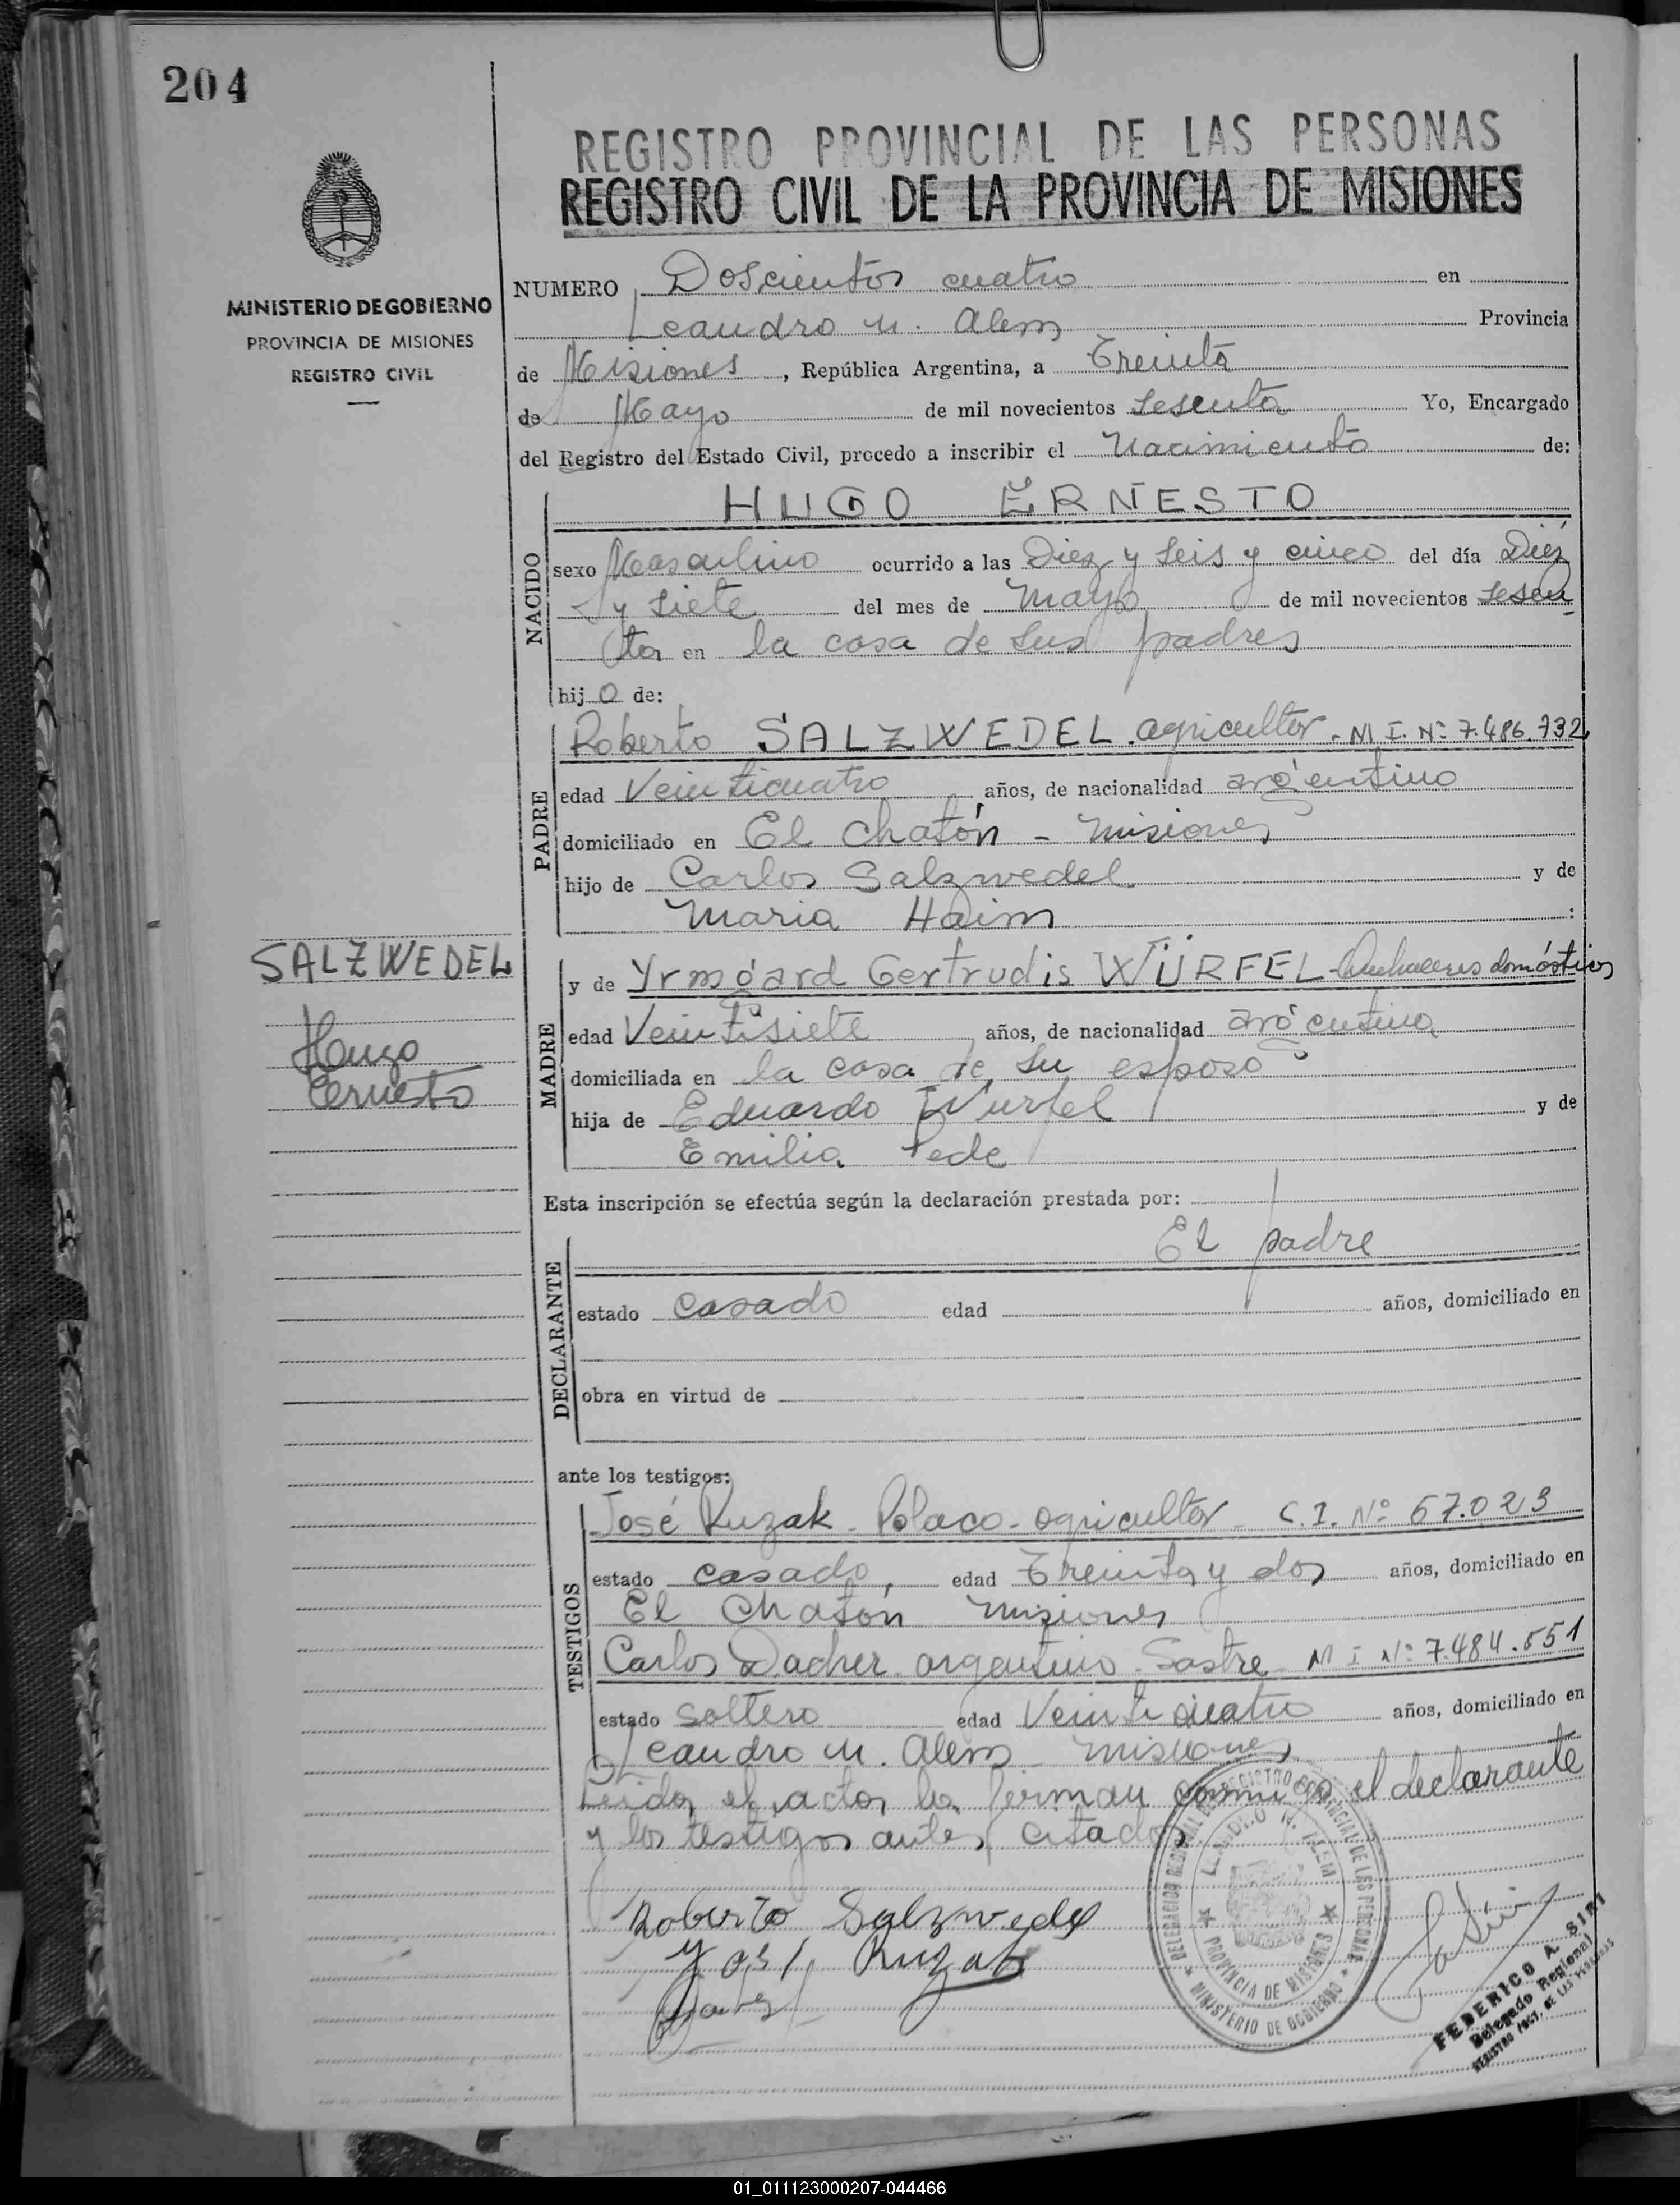 204
REGISTRO PROVINCIAL DE LAS PERSONAS
REGISTRO CIVIL DE LA PROVINCIA DE MISIONES
MINISTERIO DE GOBIERNO
PROVINCIA DE MISIONES
REGISTRO CIVIL
NUMERO Doscientos cuatro en
Leandro N. Alem Provincia
de Misiones, República Argentina, a Treinta
de Mayo de mil novecientos sesenta Yo, Encargado
del Registro del Estado Civil, procedo a inscribir el Nacimiento de:
NACIDO
HUGO ERNESTO
sexo Masculino ocurrido a las Diez y seis y cinco del día Diez
y siete del mes de Mayo de mil novecientos sesen
ta en la casa de sus padres
hijo de:
PADRE
Roberto SALZWEDEL. agricultor. M I. Nº 7.486.732
edad Veinticuatro años, de nacionalidad argentino
domiciliado en El Chatón - Misiones
hijo de Carlos Salzwedel y de
Maria Haim :
SALZWEDEL
Hugo
Ernesto
MADRE
y de Yrmgard Gertrudis WÜRFEL - Quehaceres domésticos
edad Veintisiete años, de nacionalidad argentina
domiciliada en la casa de su esposo
hija de Eduardo Würfel y de
Emilia Pede
Esta inscripción se efectúa según la declaración prestada por:
El padre
DECLARANTE
estado casado edad años, domiciliado en
obra en virtud de
ante los testigos:
TESTIGOS
José Ruzak - Polaco - agricultor - C.I. Nº 67.023
estado casado, edad Treinta y dos años, domiciliado en
El Chatón Misiones
Carlos Dacher. argentino - Sastre M I Nº 7.484.551
estado soltero edad Veinticuatro años, domiciliado en
Leandro N. Alem - Misiones
Leída el acta, la firman conmigo el declarante
y los testigos antes citados
Roberto Salzwedel
Ruzak
DELEGACION REGIONAL DEL REGISTRO PROVINCIAL DE LAS PERSONAS
LEANDRO N. ALEM
PROVINCIA DE MISIONES
MINISTERIO DE GOBIERNO
FEDERICO A. SIRI
Delegado Regional
REGISTRO PROV. DE LAS PERSONAS
01_011123000207-044466